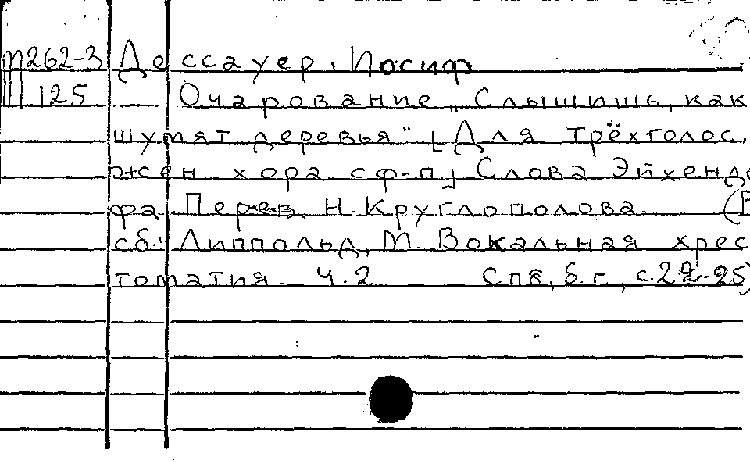 М262-3 Дессауер, Иосиф
III 125 Очарование „Слышишь, как
шумят деревья" [Для трёхголос.
жен хора сф-п] Слова Эйхендо
фа Перев. Н. Круглополова (В
сб: Липпольд, М Вокальная хрес
томатия ч.2 Спб, б.г., с.22-25)